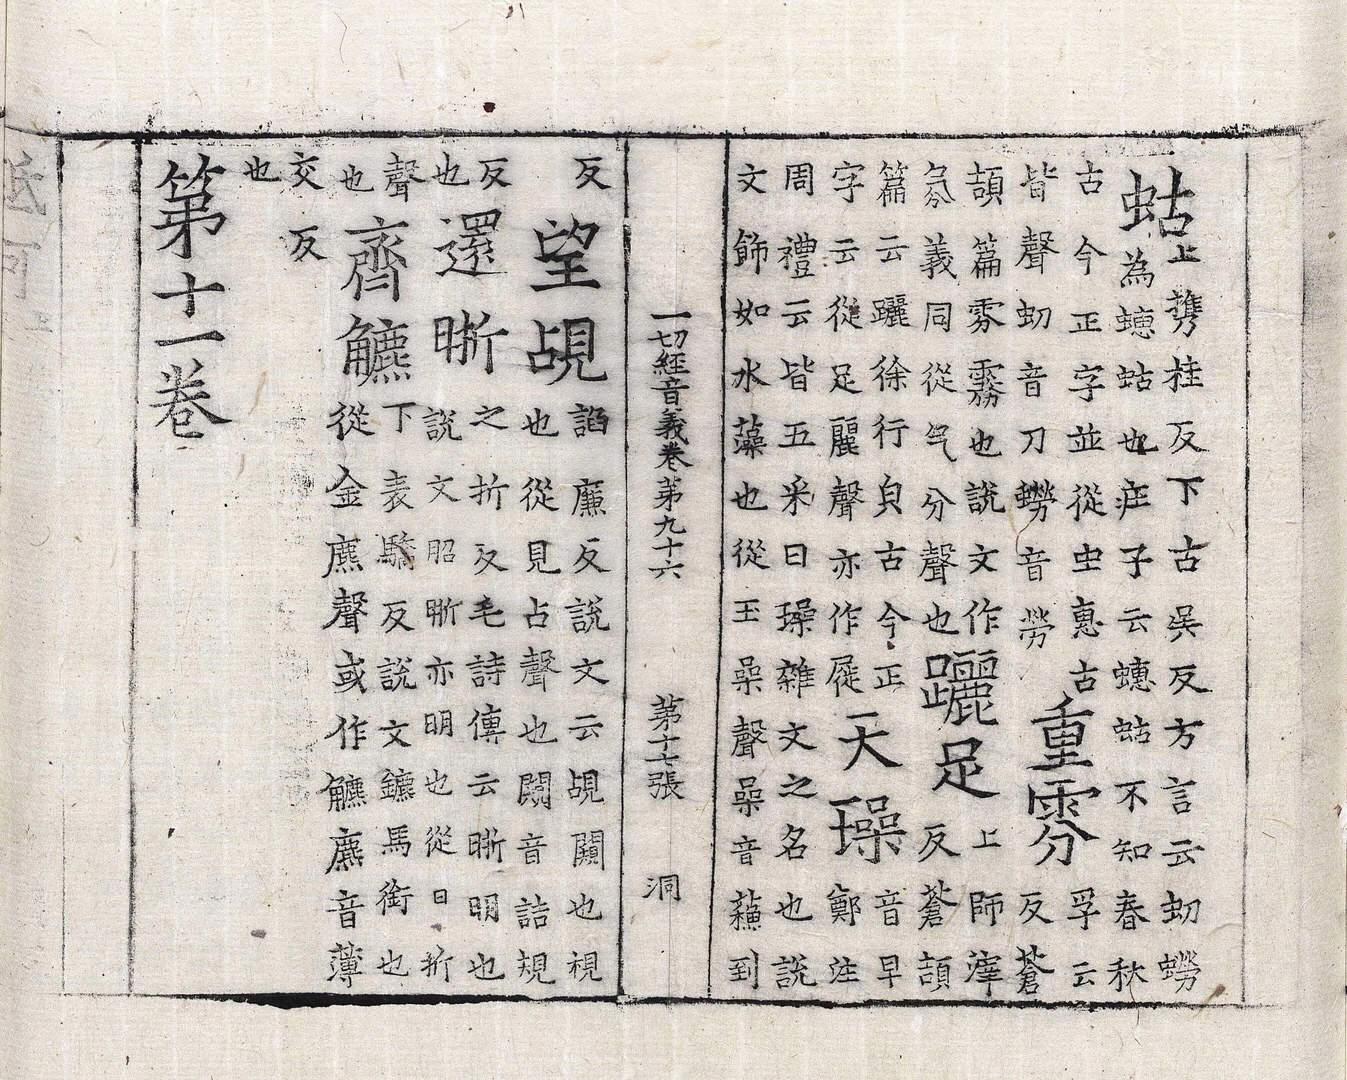 蛄上㩗桂反下古吳反方言云虭蟧
為蟪蛄也庄子云蟪蛄不知春秋
古今正字並從虫惠古
皆聲虭音刀蟧音勞重雰孚云
反蒼
頡篇雰霧也説文作
氛義同從气分聲也躧足上師滓
反蒼頡
篇云躧徐行皃古今正
字云從足麗聲亦作屣天璪音早
鄭注
周禮云皆五采曰璪雜文之名也説
文飾如水藻也從玉喿聲喿音蘓到
一切經音義卷第九十六 第十七張 洞
反
望覘諂廉反説文云覘闚也視
也從見占聲也闚音詰規
反
也還晣之折反毛詩傳云晣明也
説文昭晣亦明也從日折
聲
也齊䚩下表驕反説文鑣馬銜也
從金麃聲或作䚩麃音薄
交反
也
第十一卷